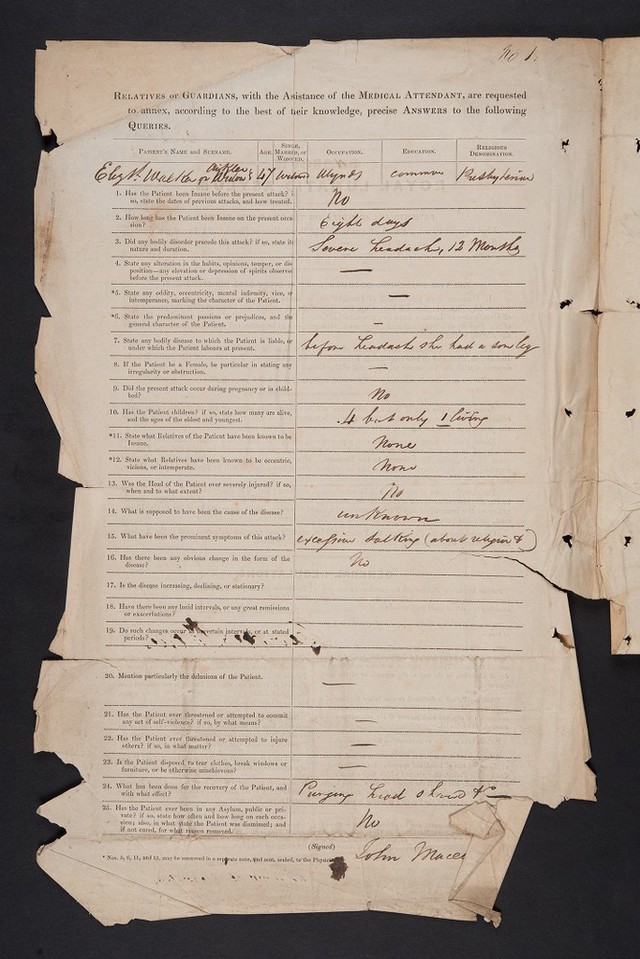 No 1.
RELATIVES or GUARDIANS, with the Asistance of the MEDICAL ATTENDANT, are requested
to annex, according to the best of their knowledge, precise ANSWERS to the following
QUERIES.
PATIENT'S NAME and SURNAME. AGE. SINGLE, MARRIED, or WIDOWED. OCCUPATION. EDUCATION. RELIGIOUS DENOMINATION.
Elizth Walker or 47 Widow common Presbyterian
1. Has the Patient been Insane before the present attack? if
so, state the dates of previous attacks, and how treated.
No
2. How long has the Patient been Insane on the present occa-
sion?
Eight days
3. Did any bodily disorder precede this attack? if so, state its
nature and duration.
Severe headach, 12 Months
4. State any alteration in the habits, opinions, temper, or dis-
position—any elevation or depression of spirits observed
before the present attack.
—
*5. State any oddity, eccentricity, mental infirmity, vice, or
intemperance, marking the character of the Patient.
—
*6. State the predominant passions or prejudices, and the
general character of the Patient.
—
7. State any bodily disease to which the Patient is liable, or
under which the Patient labours at present.
before headach she had a sore leg
8. If the Patient be a Female, be particular in stating any
irregularity or obstruction.
—
9. Did the present attack occur during pregnancy or in child-
bed?
No
10. Has the Patient children? if so, state how many are alive,
and the ages of the eldest and youngest.
4 but only 1 living
*11. State what Relatives of the Patient have been known to be
Insane.
None
*12. State what Relatives have been known to be eccentric,
vicious, or intemperate.
None
13. Was the Head of the Patient ever severely injured? if so,
when and to what extent?
No
14. What is supposed to have been the cause of the disease?
unknown
15. What have been the prominent symptoms of this attack?
excessive talking (about religion &)
16. Has there been any obvious change in the form of the
disease?
No
17. Is the disease increasing, declining, or stationary?
18. Have there been any lucid intervals, or any great remissions
or exacerbations?
19. Do such changes occur at uncertain intervals, or at stated
periods?
20. Mention particularly the delusions of the Patient.
—
21. Has the Patient ever threatened or attempted to commit
any act of self-violence? if so, by what means?
—
22. Has the Patient ever threatened or attempted to injure
others? if so, in what matter?
—
23. Is the Patient disposed to tear clothes, break windows or
furniture, or be otherwise mischievous?
—
24. What has been done for the recovery of the Patient, and
with what effect?
Purging head shaved &c
25. Has the Patient ever been in any Asylum, public or pri-
vate? if so, state how often and how long on each occa-
sion; also, in what state the Patient was dismissed; and
if not cured, for what reason removed.
No
(Signed)
John
* Nos. 5, 6, 11, and 12, may be answered in a separate note, and sent, sealed, to the